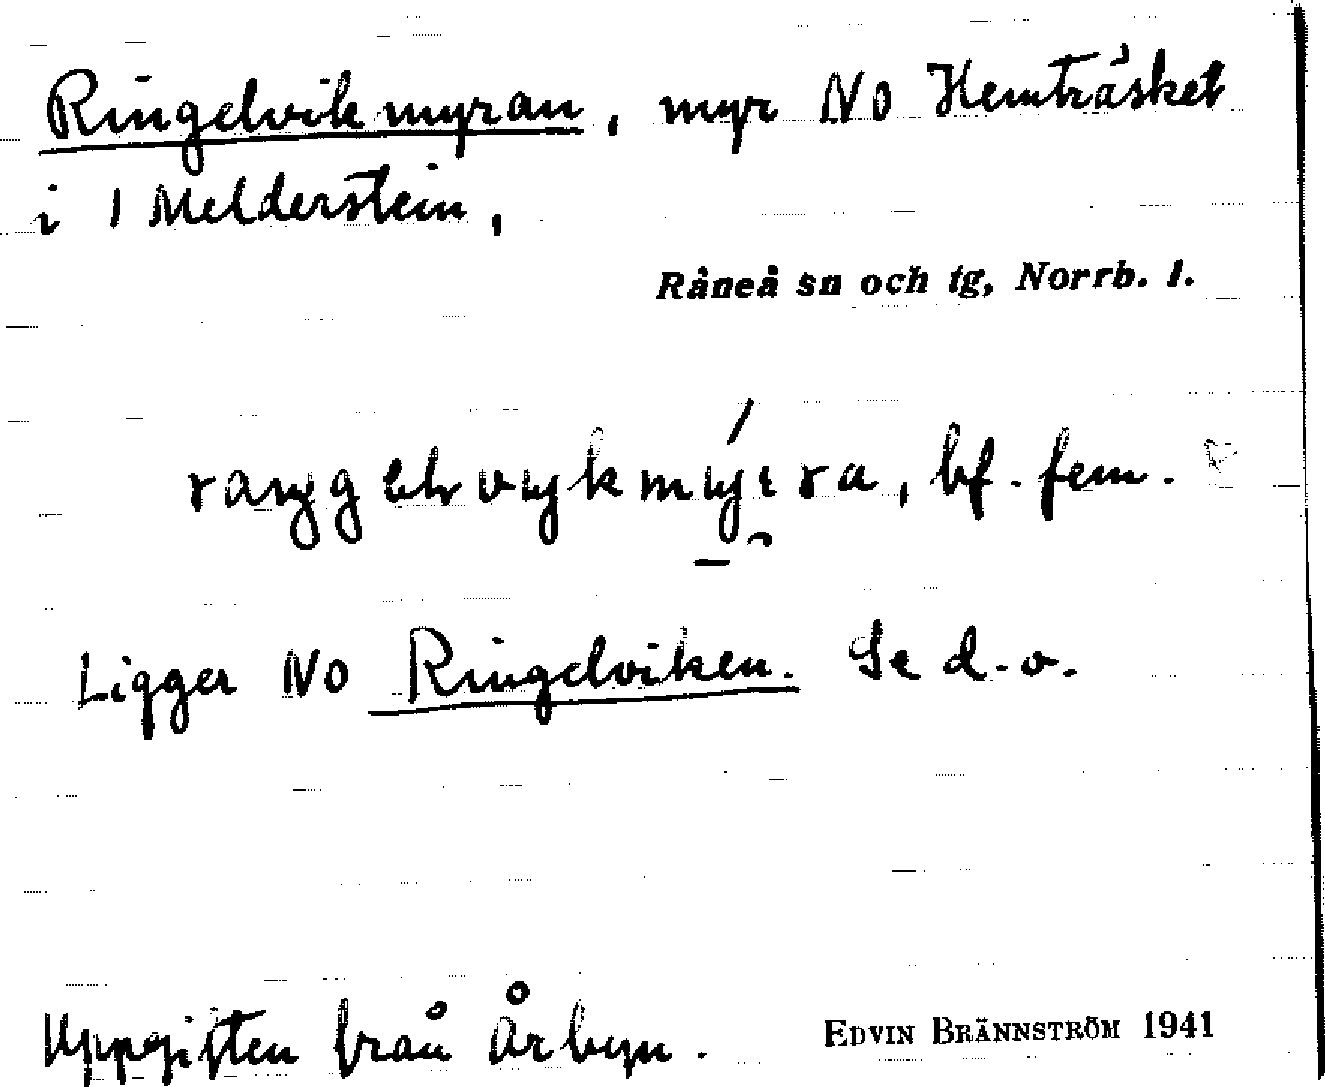 Ringelvikmyran, myr NO Hemträsket
i 1 Melderstein,
Råneå sn och tg, Norrb. l.
bf. fem.
Ligger NO Ringelviken. Se d. o.
Uppgiften från Årbyn.
EDVIN BRÄNNSTRÖM 1941